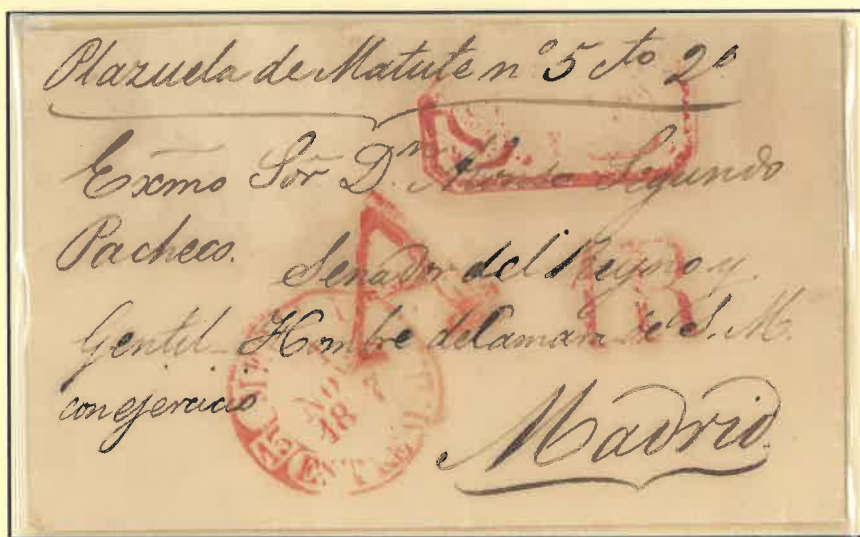 Plazuela de Matute nº 5 cto 2º
Exmo Sor Dn Segundo
Pacheco. Senador del Reyno y
Gentil Hombre de Camara de S. M.
con egercicio
Madrid
R
NOV
18